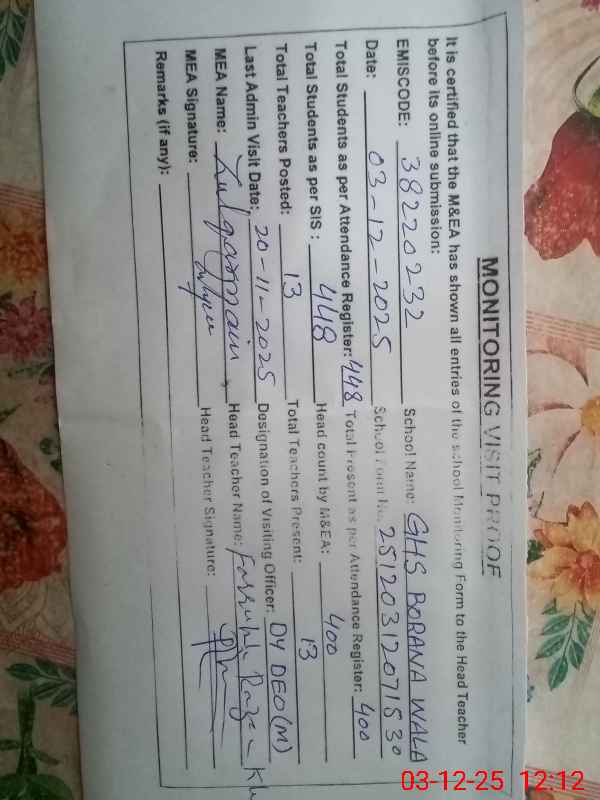 MONITORING VISIT PROOF
It is certified that the M&EA has shown all entries of the school Monitoring Form to the Head Teacher
before its online submission:
EMISCODE: 38220232 School Name: GHS BORANA WALA
Date: 03-12-2025 School Form No. 2512031207183
Total Students as per Attendance Register: 448 Total Present as per Attendance Register: 400
Total Students as per SIS : 448 Head count by M&EA: 400
Total Teachers Posted: 13 Total Teachers Present: 13
Last Admin Visit Date; 20-11-2025 Designation of Visiting Officer: DY DEO(M)
MEA Name: Zulqarnain Head Teacher Name:
MEA Signature: Head Teacher Signature:
Remarks (if any):
03-12-25 12:12